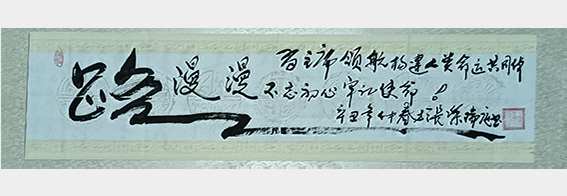 路漫漫
习主席领航构建人类命运共同体
不忘初心牢记使命
辛丑年仲春张荣